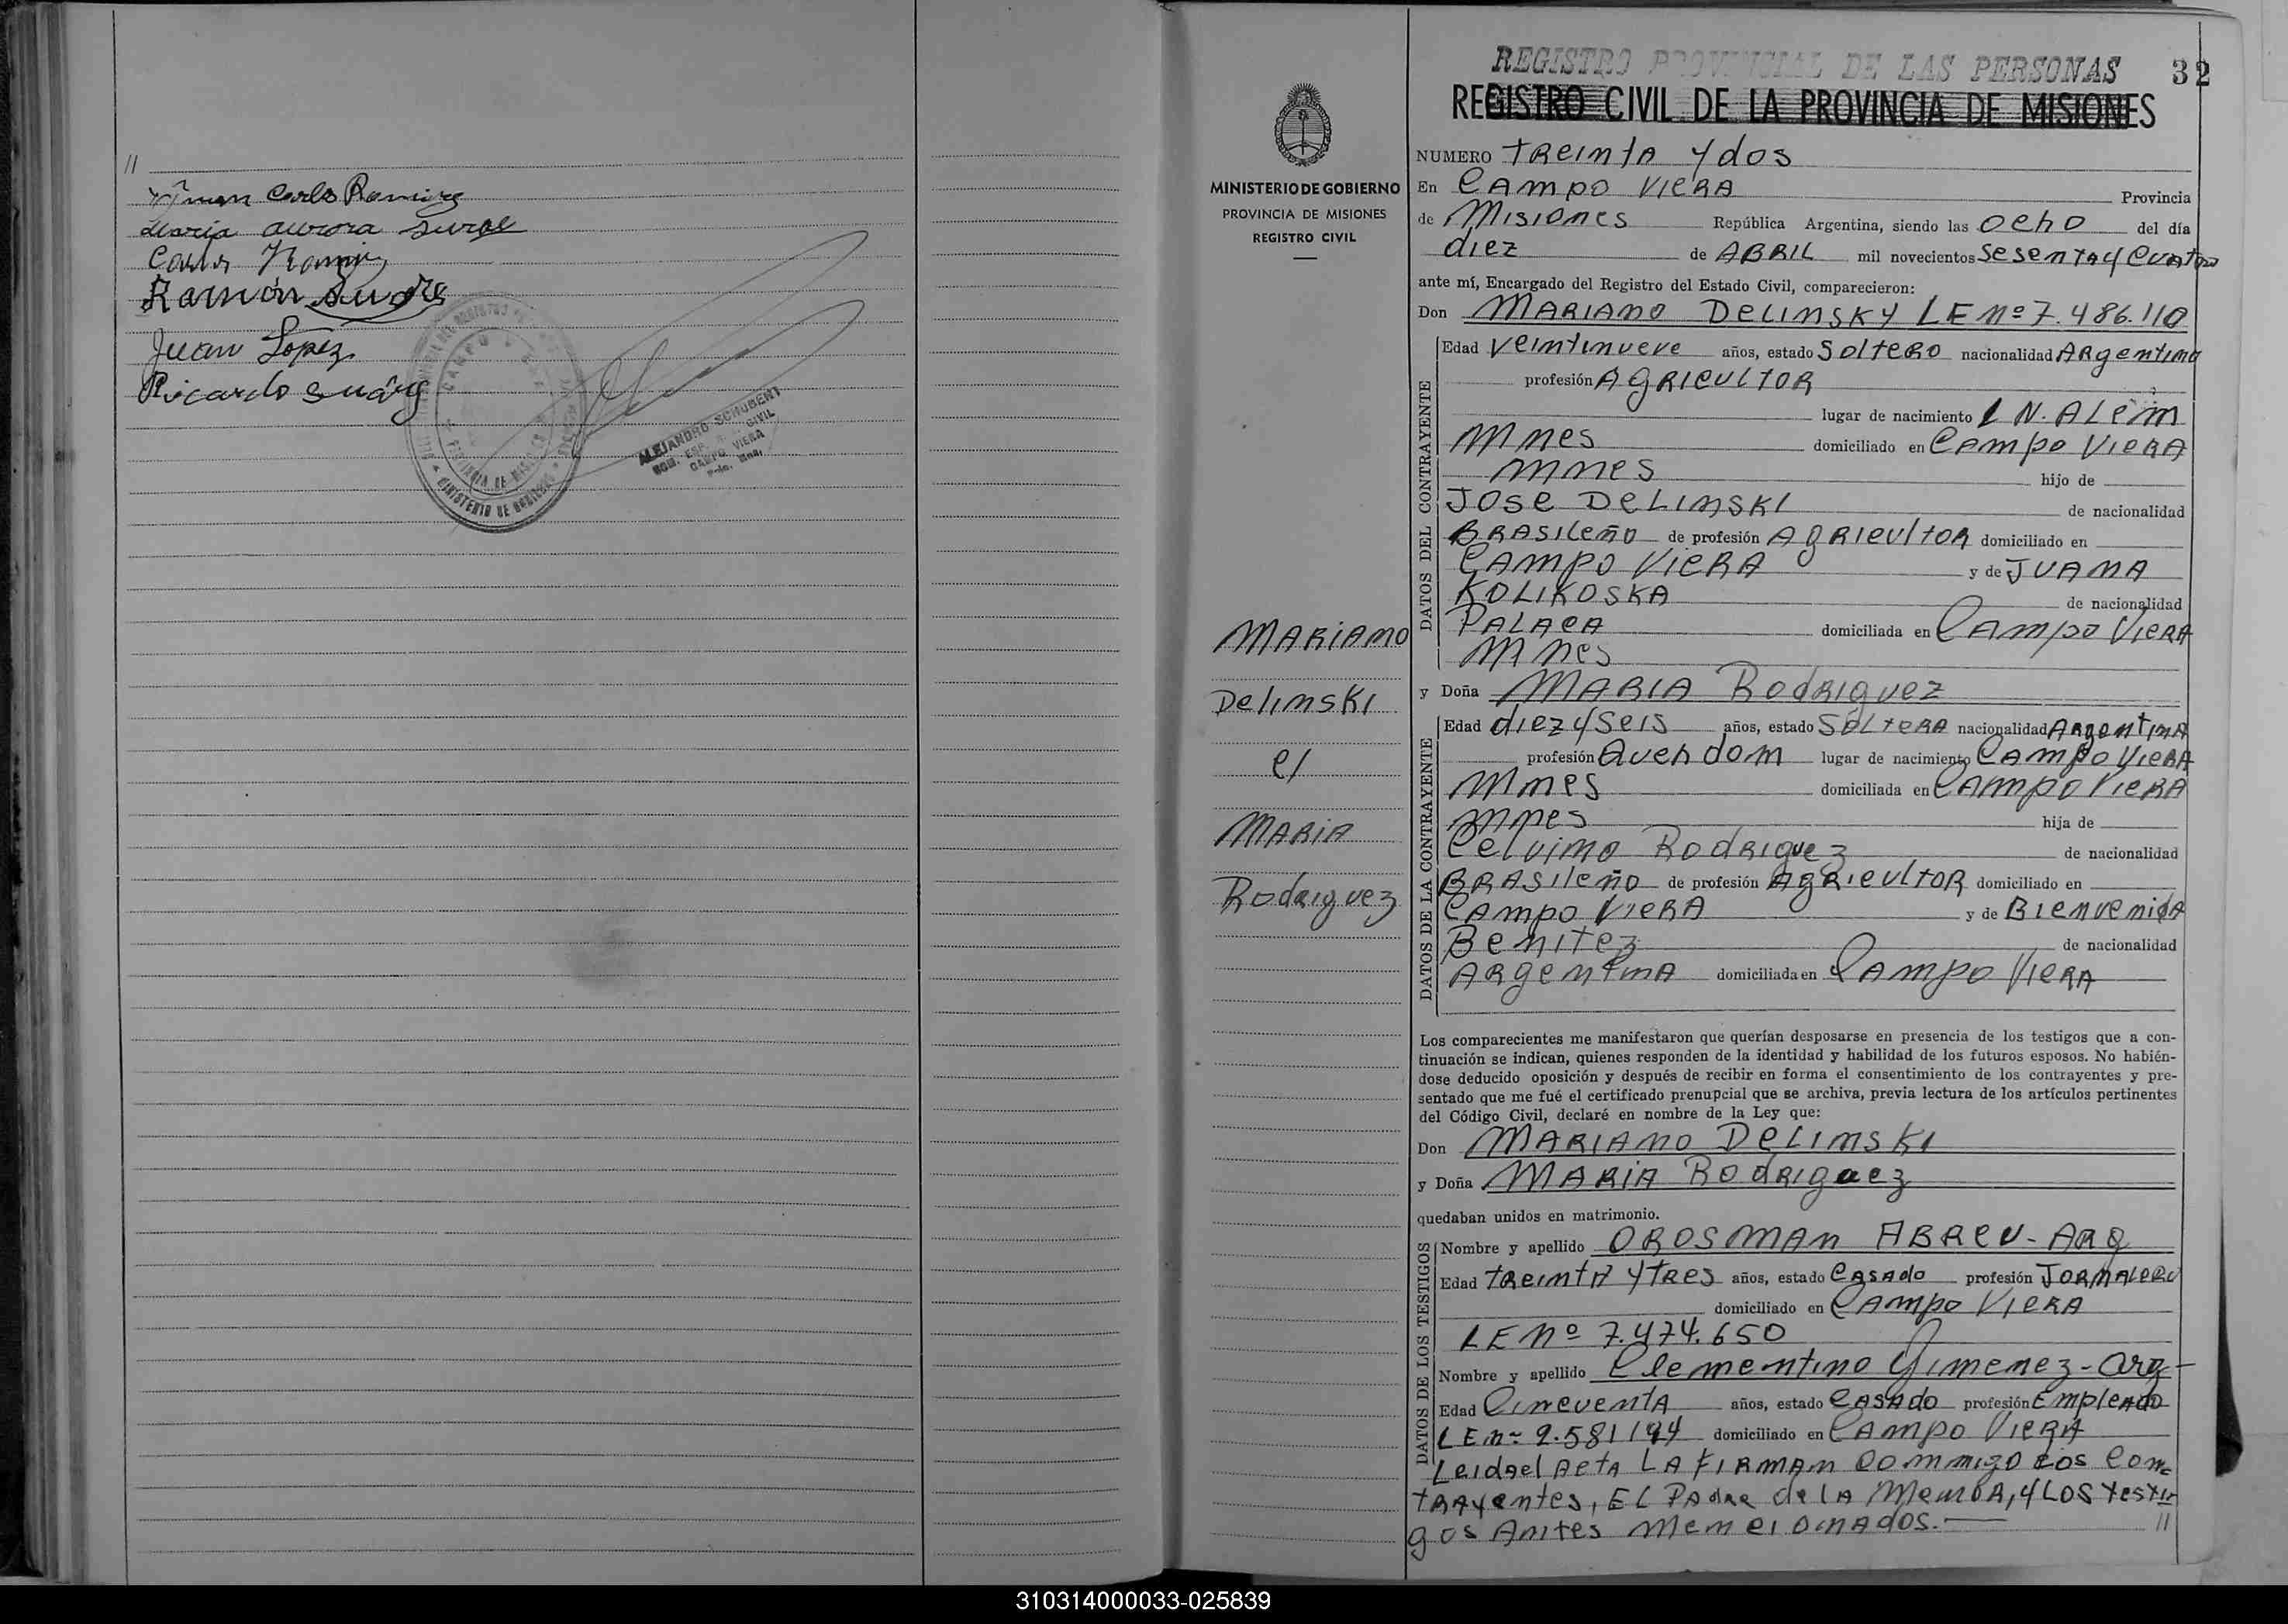 //
Juan Carlos Ramirez
Maria aurora Surez
Carlos Ramirez
Ramón Suarez
Juan Lopez
Ricardo Suárez
CAMPO VIERA
PROVINCIA DE MISIONES
MINISTERIO DE GOBIERNO
ALEJANDRO SCHUBERT
CIVIL
CAMPO VIERA
Pcia. Mnes.
MINISTERIO DE GOBIERNO
PROVINCIA DE MISIONES
REGISTRO CIVIL
MARIANO
DelinsKi
c/
MARIA
Rodriguez
REGISTRO PROVINCIAL DE LAS PERSONAS 32
REGISTRO CIVIL DE LA PROVINCIA DE MISIONES
NUMERO treinta y dos
En CAMPO VIERA Provincia
de Misiones República Argentina, siendo las ocho del día
diez de ABRIL mil novecientos Sesenta y Cuatro
ante mí, Encargado del Registro del Estado Civil, comparecieron:
Don MARIANO DELINSKY LE Nº 7.486.110
DATOS DEL CONTRAYENTE
Edad veintinueve años, estado Soltero nacionalidad Argentina
profesión AGRICULTOR
lugar de nacimiento L N. ALEM
Mnes domiciliado en CAMPO VIERA
Mnes hijo de
JOSE DELINSKI de nacionalidad
BRASILEÑO de profesión AGRICULTOR domiciliado en
CAMPO VIERA y de JUANA
KOLIKOSKA de nacionalidad
PALACA domiciliada en CAMPO VIERA
Mnes
y Doña MARIA Rodriguez
DATOS DE LA CONTRAYENTE
Edad diez y seis años, estado SOLTERA nacionalidad Argentina
profesión Queh dom lugar de nacimiento CAMPO VIERA
Mnes domiciliada en CAMPO VIERA
Mnes hija de
Celvino Rodriguez de nacionalidad
BRASILEÑO de profesión AGRICULTOR domiciliado en
CAMPO VIERA y de BIENVENIDA
Benitez de nacionalidad
Argentina domiciliada en CAMPO VIERA
Los comparecientes me manifestaron que querían desposarse en presencia de los testigos que a con-
tinuación se indican, quienes responden de la identidad y habilidad de los futuros esposos. No habién-
dose deducido oposición y después de recibir en forma el consentimiento de los contrayentes y pre-
sentado que me fué el certificado prenupcial que se archiva, previa lectura de los artículos pertinentes
del Código Civil, declaré en nombre de la Ley que:
Don MARIANO DELINSKI
y Doña MARIA Rodriguez
quedaban unidos en matrimonio.
DATOS DE LOS TESTIGOS
Nombre y apellido OROSMAN ABREU - ARG
Edad treinta y tres años, estado casado profesión JORNALERO
domiciliado en CAMPO VIERA
LE Nº 7.474.650
Nombre y apellido Clementino Gimenez - arg -
Edad Cincuenta años, estado casado profesión Empleado
LE nº 2.581194 domiciliado en CAMPO VIERA
Leida el acta LA FIRMAN conmigo los con
trayentes, EL PADRE de la MENOR, y LOS testi
gos antes mencionados. — //
310314000033-025839